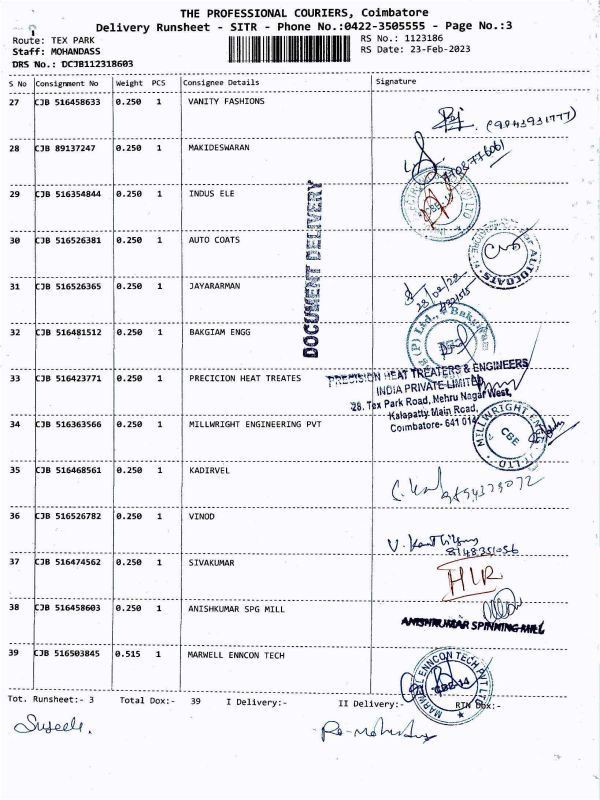 THE PROFESSIONAL COURIERS, Coimbatore
Delivery Runsheet - SITR - Phone No.:0422-3505555 - Page No.:3
Route: TEX PARK
RS No.: 1123186
Staff: MOHANDASS
RS Date: 23-Feb-2023
DRS No.: DCJB112318603
S No Consignment No Weight PCS Consignee Details Signature
27 CJB 516458633 0.250 1 VANITY FASHIONS
(9843931777)
28 CJB 89137247 0.250 1 MAKIDESWARAN
29 CJB 516354844 0.250 1 INDUS ELE
DOCUMENT DELIVERY
30 CJB 516526381 0.250 1 AUTO COATS
AUTOCOATS
31 CJB 516526365 0.250 1 JAYARARMAN
32 CJB 516481512 0.250 1 BAKGIAM ENGG
(P) Ltd.,
33 CJB 516423771 0.250 1 PRECICION HEAT TREATES
PRECISION HEAT TREATERS & ENGINEERS
INDIA PRIVATE LIMITED
28, Tex Park Road, Nehru Nagar West,
Kalapatty Main Road,
Coimbatore- 641 014
34 CJB 516363566 0.250 1 MILLWRIGHT ENGINEERING PVT
MILLWRIGHT
CBE
35 CJB 516468561 0.250 1 KADIRVEL
36 CJB 516526782 0.250 1 VINOD
8148351056
37 CJB 516474562 0.250 1 SIVAKUMAR
HLR
38 CJB 516458603 0.250 1 ANISHKUMAR SPG MILL
ANISHKUMAR SPINNING MILL
39 CJB 516503845 0.515 1 MARWELL ENNCON TECH
MARWELL ENNCON TECH PVT LTD
CBE-14
Tot. Runsheet:- 3 Total Dox:- 39 I Delivery:- II Delivery:- RTN Dox:-